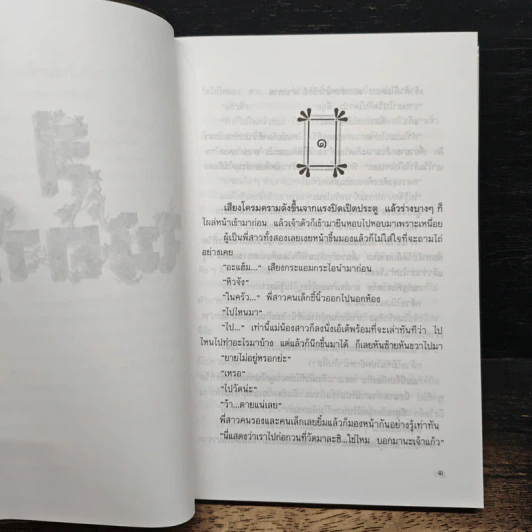 ๑
เสียงโครมครามดังขึ้นจากแรงปิดเปิดประตู แล้วร่างบางๆ ก็
โผล่หน้าเข้ามาก่อน แล้วเจ้าตัวก็เข้ามายืนหอบไปหอบมาเพราะเหนื่อย
ผู้เป็นพี่สาวทั้งสองเลยเงยหน้าขึ้นมองแล้วก็ไม่ใส่ใจที่จะถามไถ่
อย่างเคย
"อะแฮ้ม..." เสียงกระแอมกระไอนำมาก่อน
"หิวจัง"
"ในครัว..." พี่สาวคนเล็กชี้นิ้วออกไปนอกห้อง
"ไปไหนมา"
"ไป..." เท่านี้แม่น้องสาวก็ลงนั่งเอ้เต้พร้อมที่จะเล่าทันทีว่า ไป
ไหนไปทำอะไรมาบ้าง แต่แล้วก็นึกขึ้นมาได้ ก็เลยหันซ้ายหันขวาไปมา
"ยายไม่อยู่หรอกย่ะ"
"เหรอ"
"ไปวัดน่ะ"
"ว้า...ตายแน่เลย"
พี่สาวคนรองและคนเล็กเลยยิ้มแล้วก็มองหน้ากันอย่างรู้เท่าทัน
"นี่แสดงว่าเราไปก่อกวนที่วัดมาละซิ...ใช่ไหม บอกมานะเจ้าแก้ว"